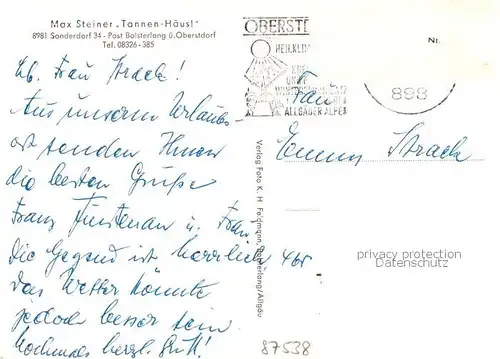 Max Steiner „Tannen-Häusl"
8981 Sonderdorf 34 - Post Bolsterlang ü. Oberstdorf
Tel. 08326-385
Lb. Frau Strack!
Aus unserem Urlaubs-
ort senden Ihnen
die besten Grüße
Franz Fürstenau u. Frau
Die Gegend ist herrlich,
das Wetter könnte
jedoch besser sein
Nochmals herzl. Gruß!
Verlag Foto K. H. Feldmann, Bolsterlang/Allgäu
OBERSTD
HEILKLIM
UND
ALLGÄUER ALPEN
898
Nr.
Frau
Emmy Strack
465
privacy protection
Datenschutz
87538